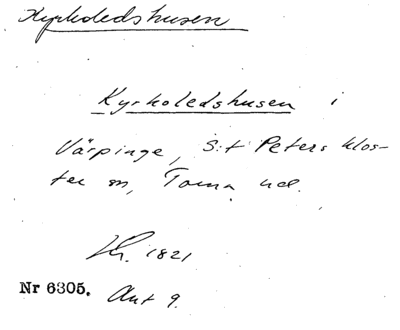 Kyrkoledshusen
Kyrkoledshusen i
Värpinge, S:t Peters klos-
ter sn, Torna hd.
1821
Nr 6305. Avt 9.